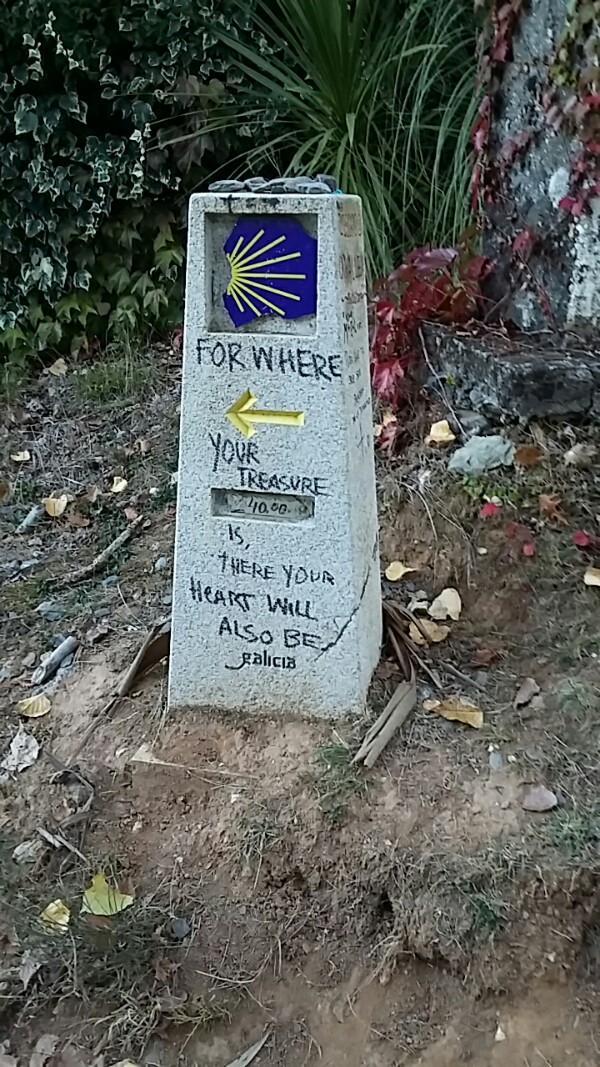 FOR WHERE
YOUR
TREASURE
IS,
THERE YOUR
HEART WILL
ALSO BE
galicia